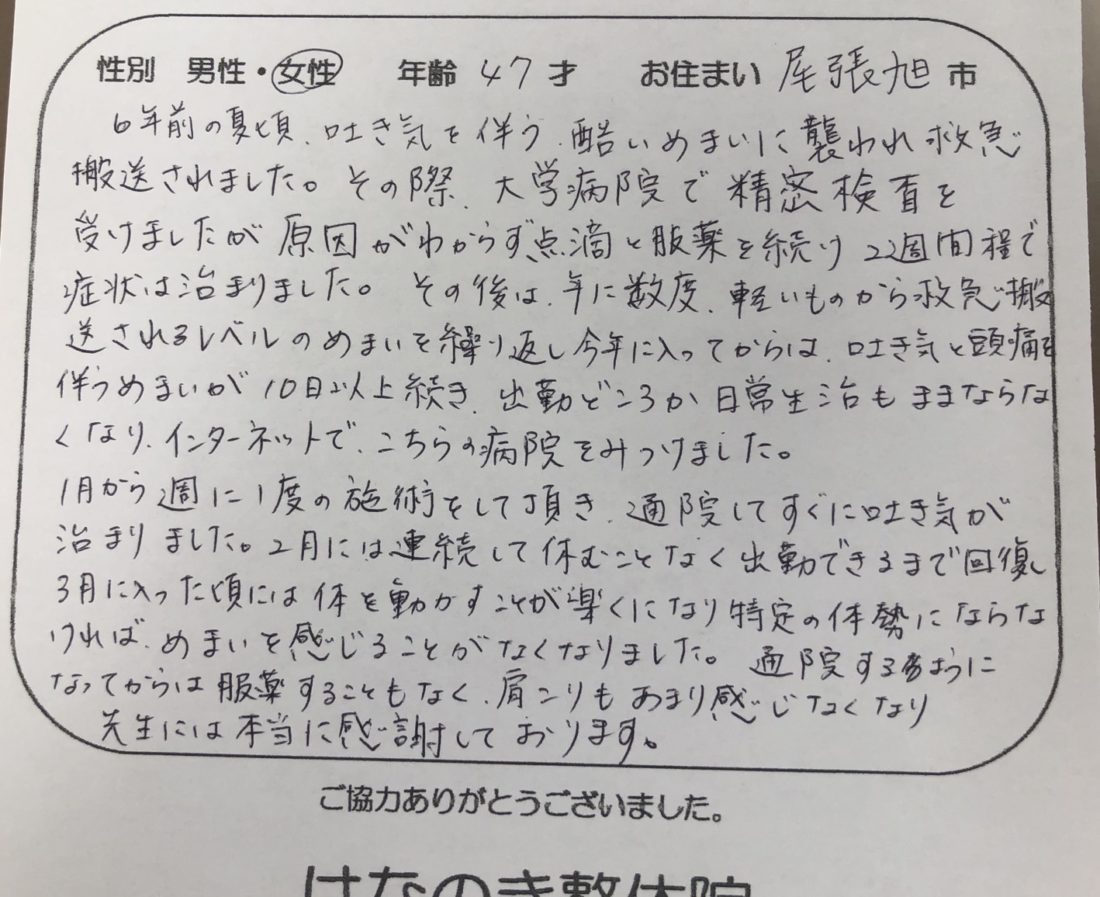 性別 男性・女性 年齢 47才 お住まい 尾張旭市
6年前の夏頃、吐き気を伴う、酷いめまいに襲われ救急
搬送されました。その際、大学病院で精密検査を
受けましたが原因がわからず点滴と服薬を続け2週間程で
症状は治まりました。その後は、年に数度、軽いものから救急搬
送されるレベルのめまいを繰り返し今年に入ってからは、吐き気と頭痛を
伴うめまいが10日以上続き、出勤どころか日常生活もままならな
くなり、インターネットで、こちらの病院をみつけました。
1月から週に1度の施術をして頂き、通院してすぐに吐き気が
治まりました。2月には連続して休むことなく出勤できるまで回復し
3月に入った頃には体を動かすことが楽くになり特定の体勢にならな
ければ、めまいを感じることがなくなりました。通院するように
なってからは服薬することもなく、肩こりもあまり感じなくなり
先生には本当に感謝しております。
ご協力ありがとうございました。
はなのき整体院